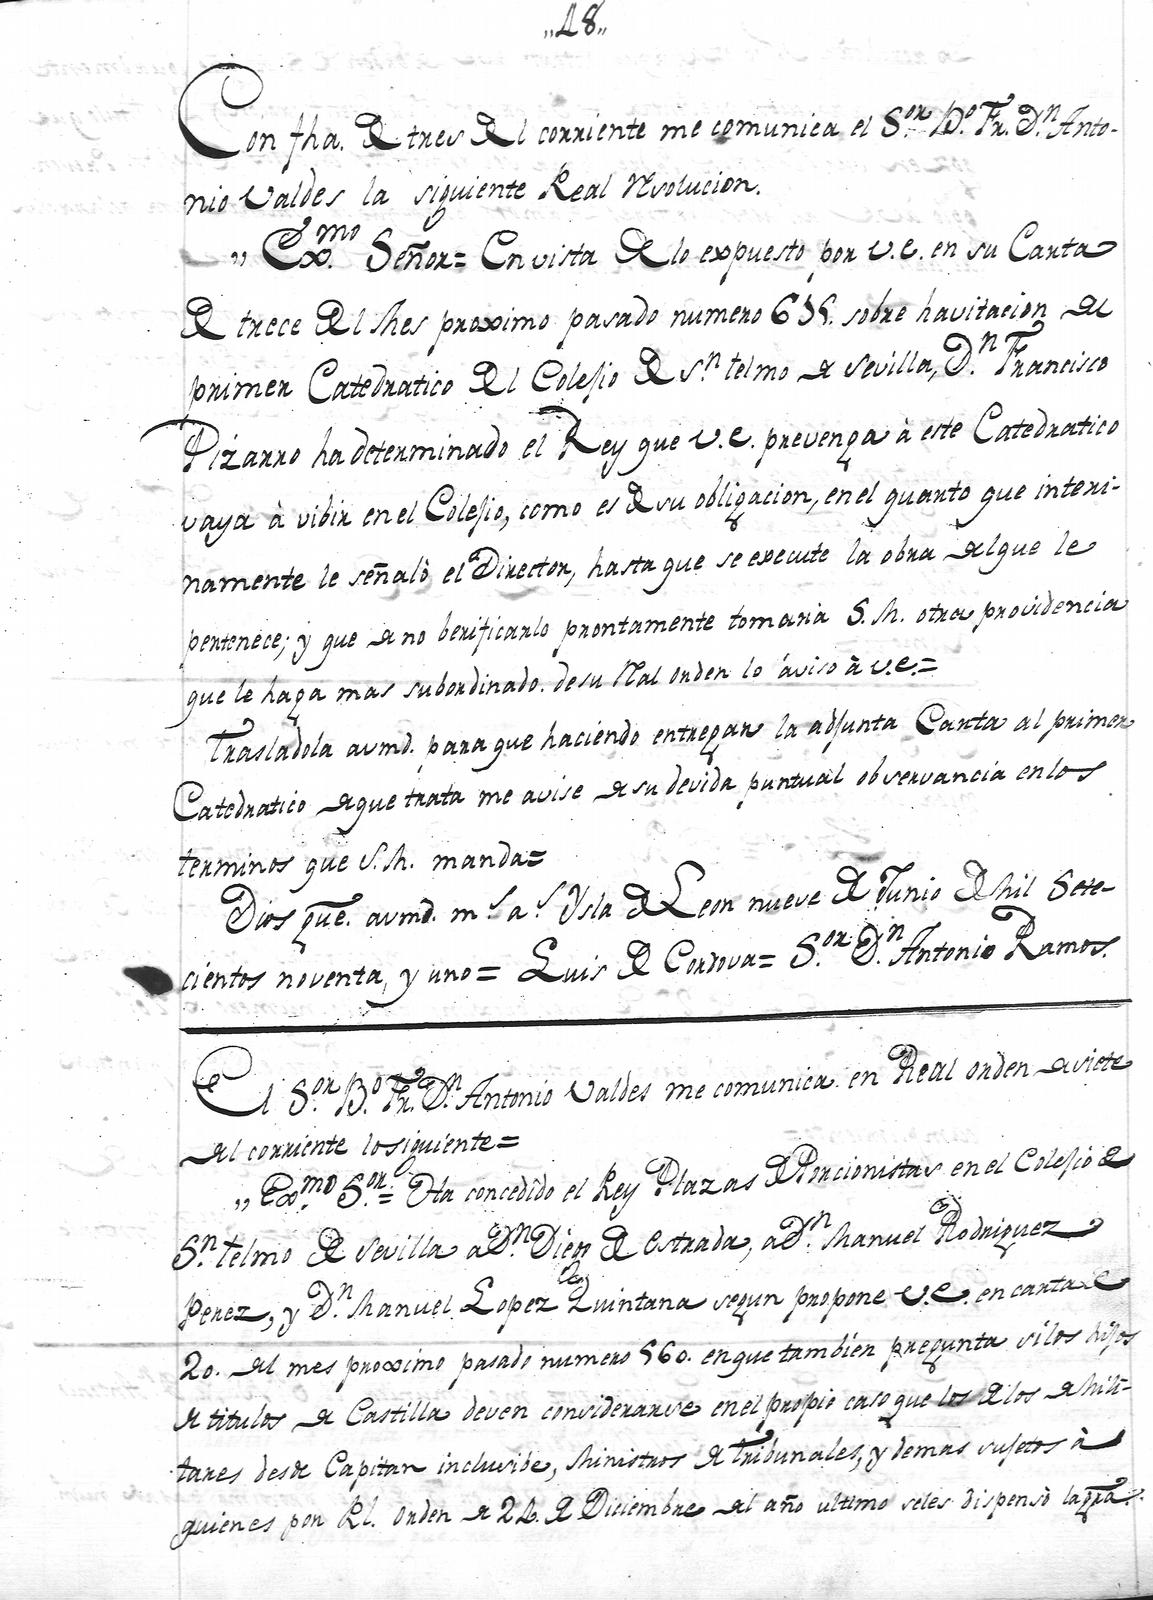 „48„
Con fha. de tres del corriente me comunica el S.or B.o Fr. D.n Anto-
nio Valdes la siguiente Real resolucion.
„ Ex.mo Señor= En vista de lo expuesto por V.E. en su Carta
de trece del Mes proximo pasado numero 635. sobre havitacion del
primer Catedratico del Colejio de S.n telmo de Sevilla, D.n Francisco
Pizarro ha determinado el Rey que V.E. prevenga à este Catedratico
vaya à vibir en el Colejio, como es de su obligacion, en el quarto que interi-
namente le señalò el Director, hasta que se execute la obra del que le
pertenece; y que de no berificarlo prontamente tomaria S.M. otra providencia
que le haga mas subordinado. de su Rl. orden lo aviso à V.E.=
Trasladola avmd. para que haciendo entregar la adjunta Carta al primer
Catedratico de que trata me avise de su devida puntual observancia en los
terminos que S.M. manda=
Dios gue. avmd. m.s a.s Ysla de Leon nueve de Junio de Mil Sete-
cientos noventa, y uno= Luis de Cordova= S.or D.n Antonio Ramos.
El S.or B.o Fr. D.n Antonio Valdes me comunica en Real orden de siete
del corriente lo siguiente=
„ Ex.mo S.or= Ha concedido el Rey Plazas de Porcionistas en el Colejio de
S.n telmo de Sevilla a D.n Diego de estrada, a D.n Manuel Rodriguez
Perez, y D.n Manuel Lopez Quintana segun propone V.E. en carta de
20. del mes proximo pasado numero 560. en que tambien pregunta si los hijos
de titulos de Castilla deven considerarse en el propio caso que los de los de Mili-
tares desde Capitan inclusibe, Ministros de Tribunales, y demas sujetos à
quienes por Rl. orden de 24. de Diciembre del año ultimo seles dispensò la gra.